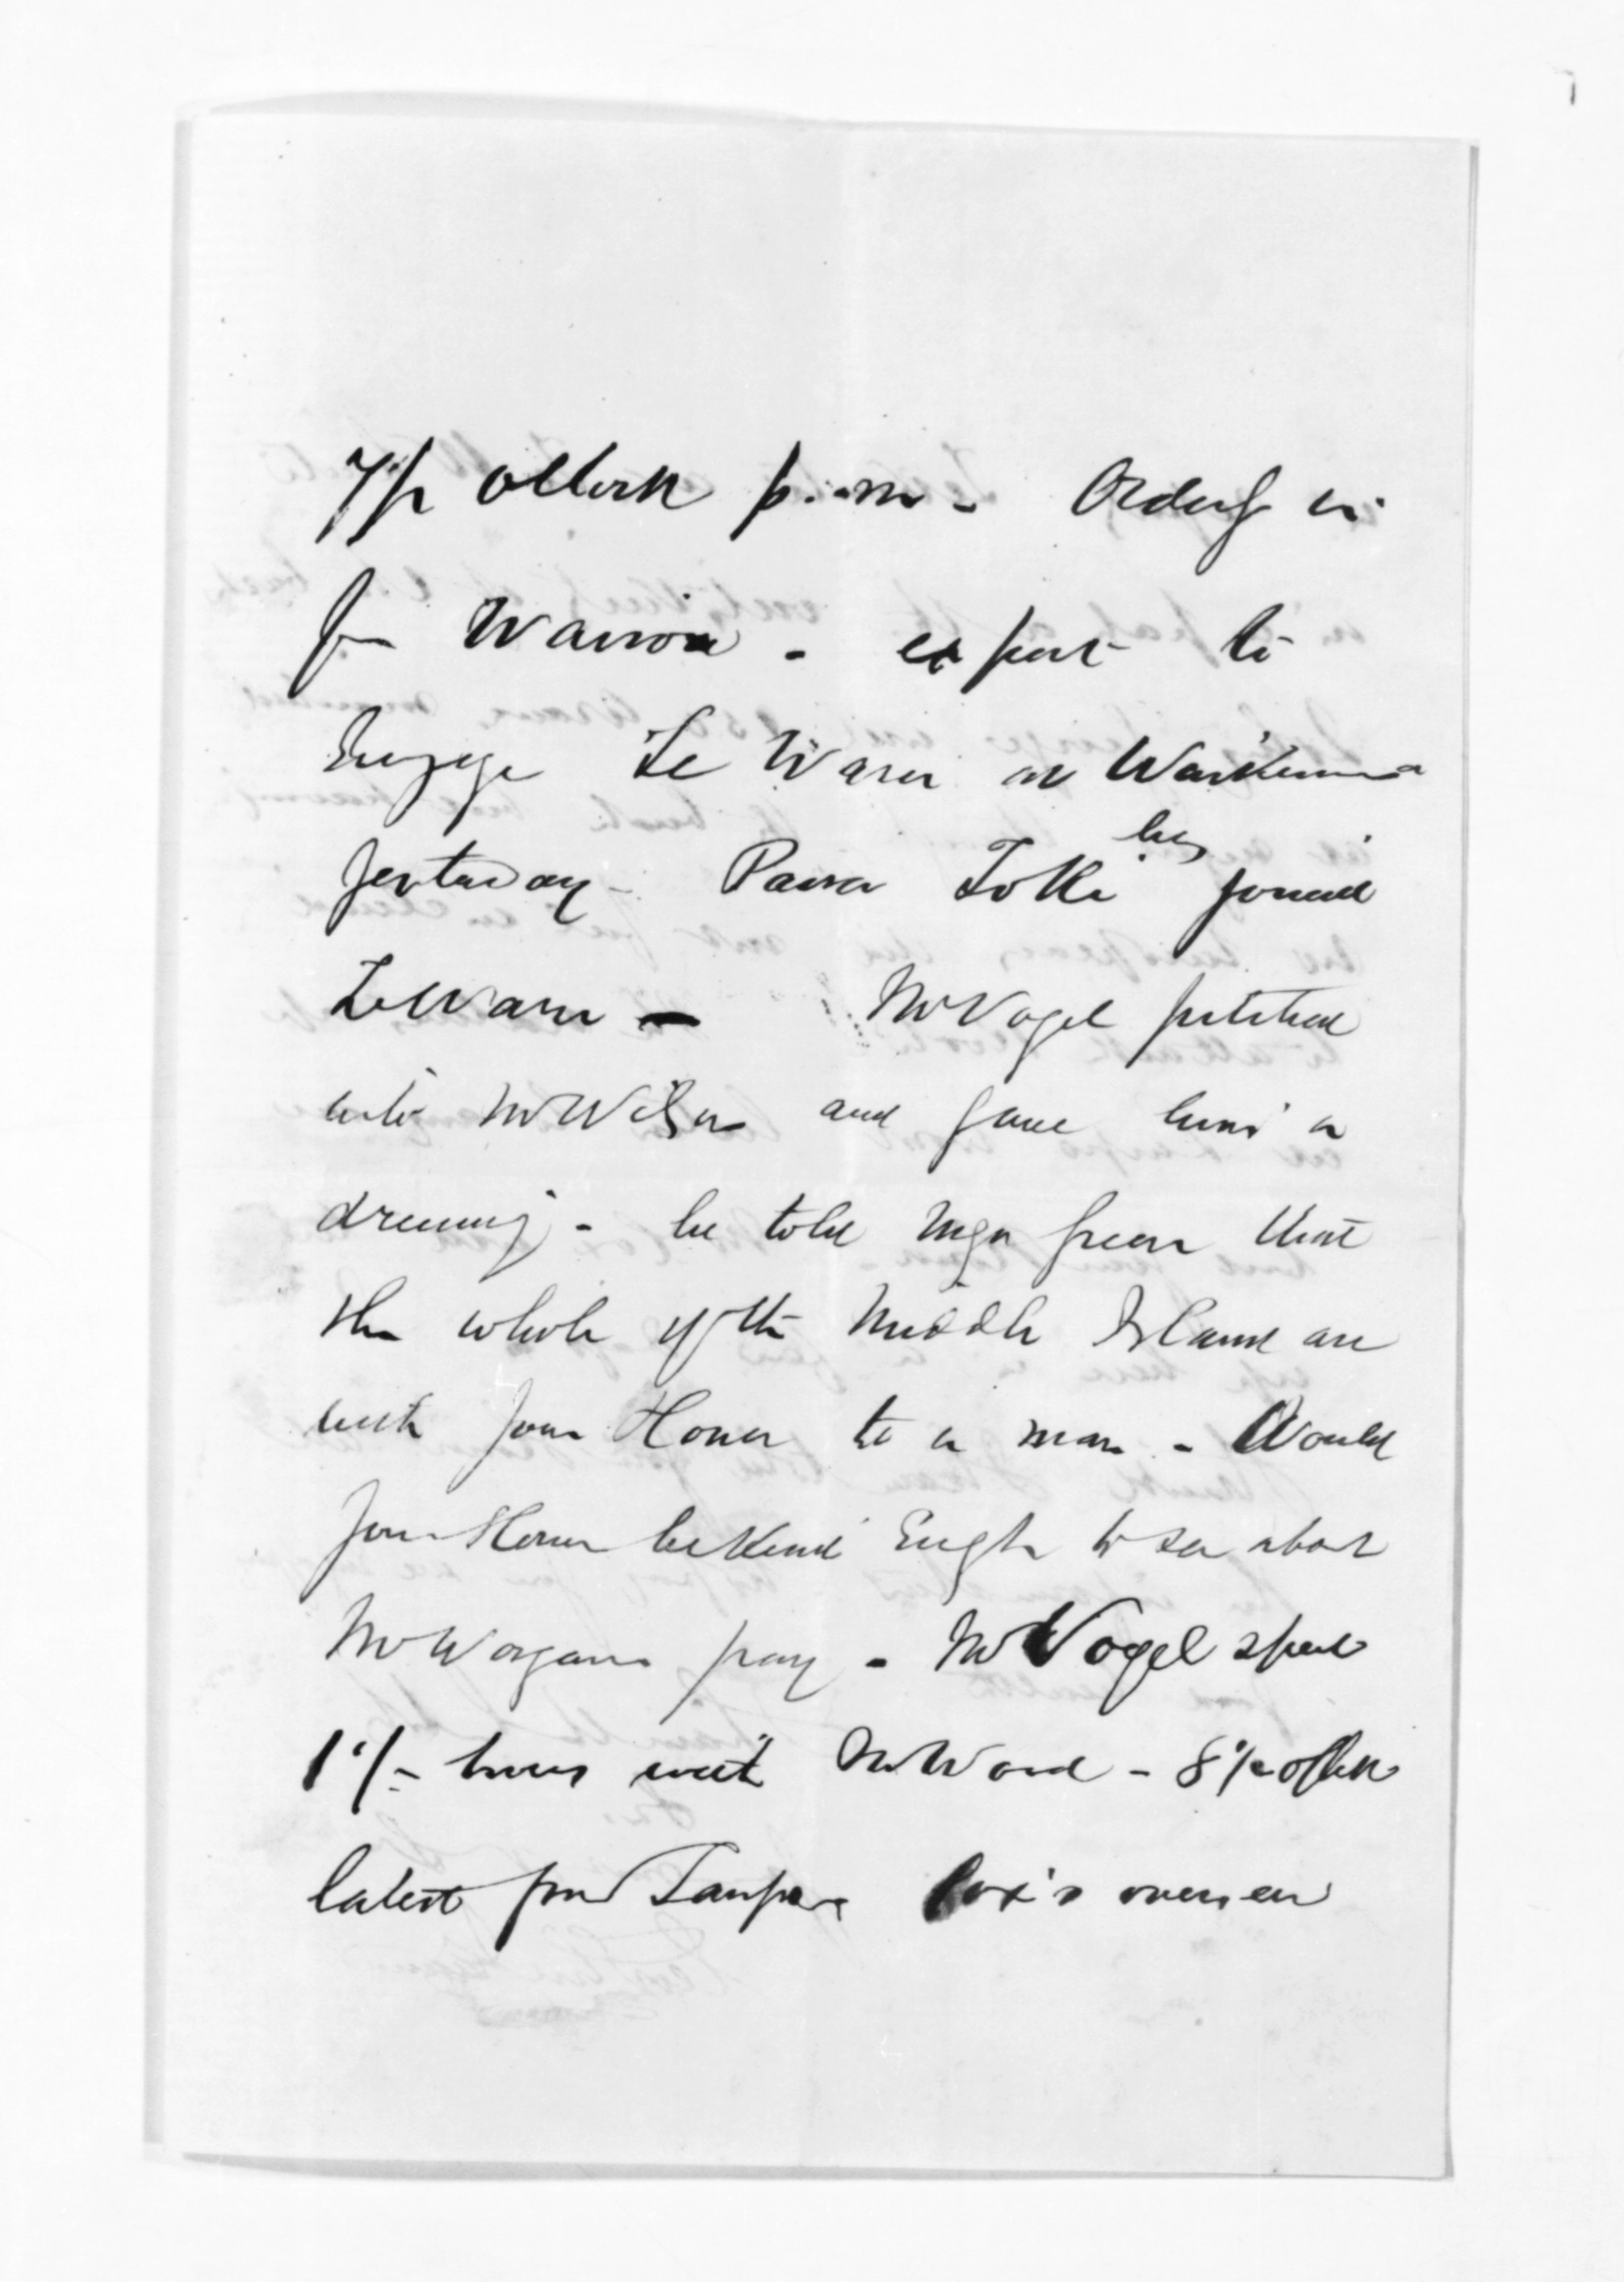 7 1/2 oClock p.m - Orderly in
from Wairoa - expect to
Engage Te Waru at Waikemua
yesterday - Paora Toki has joined
Te Waru - Mr Vogel pitched
into Mr Wilson and gave him a
dressing - he told Major Green that
the whole of the Middle Island are
with your Honor to a man - Would
your Honor be kind Eногh to see about
Mr Worgans pay - Mr Vogel spent
1 1/2 hours with Mr Word - 8 1/2 oClock
latest from Taupo Cox's overseer